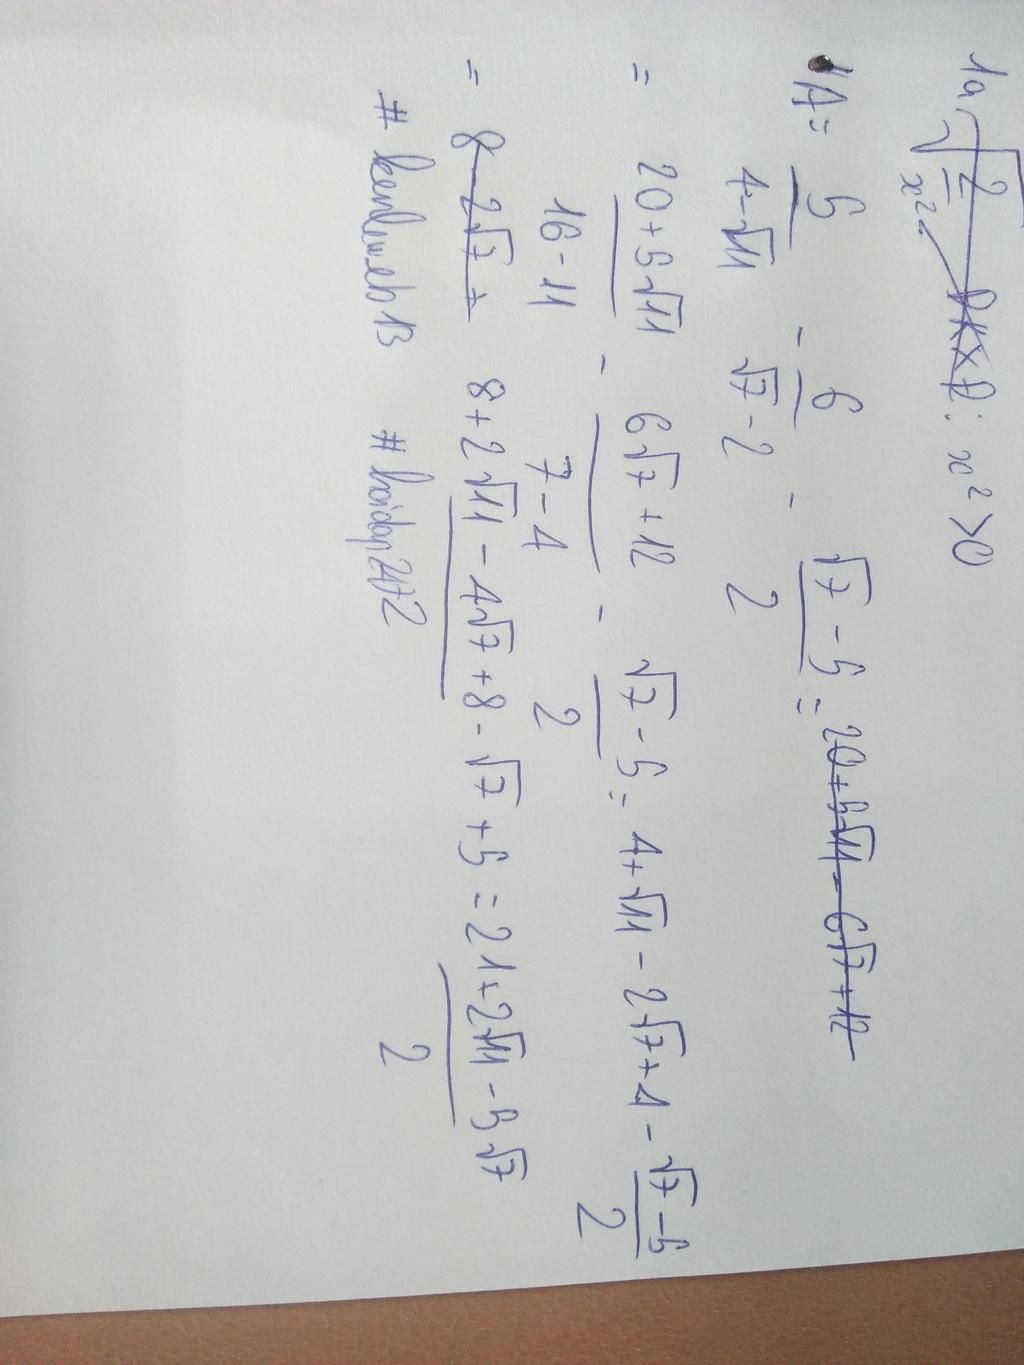 1a, √(2/x²) ĐKXĐ: x² > 0
A = 5/(4-√11) - 6/(√7-2) - (√7-5)/2 = 20+5√11-6√7+12
= (20+5√11)/(16-11) - (6√7+12)/(7-4) - (√7-5)/2 = 4+√11-2√7+4-(√7-5)/2
= 8-2√7+ 8+2√11-4√7+8-√7+5 = (21+2√11-5√7)/2
# kenlem eb13 # hoidap247